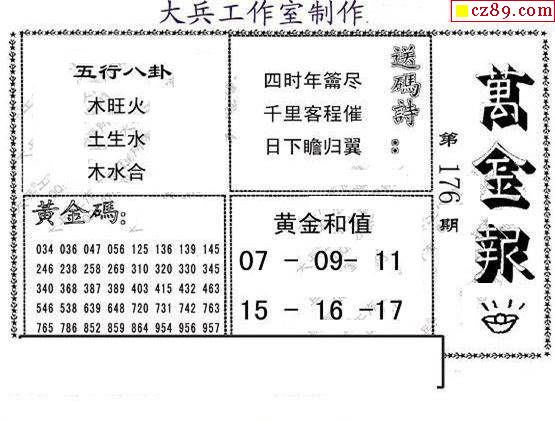 大兵工作室制作
cz89.com
五行八卦
木旺火
土生水
木水合
送碼詩：
四时年籥尽
千里客程催
日下瞻归翼
萬金報
第176期
黃金碼：
034 036 047 056 125 136 139 145
246 238 258 269 310 320 330 345
340 368 387 389 403 415 432 463
546 538 639 648 720 731 742 763
765 786 852 859 864 954 956 957
黄金和值
07 - 09- 11
15 - 16 -17